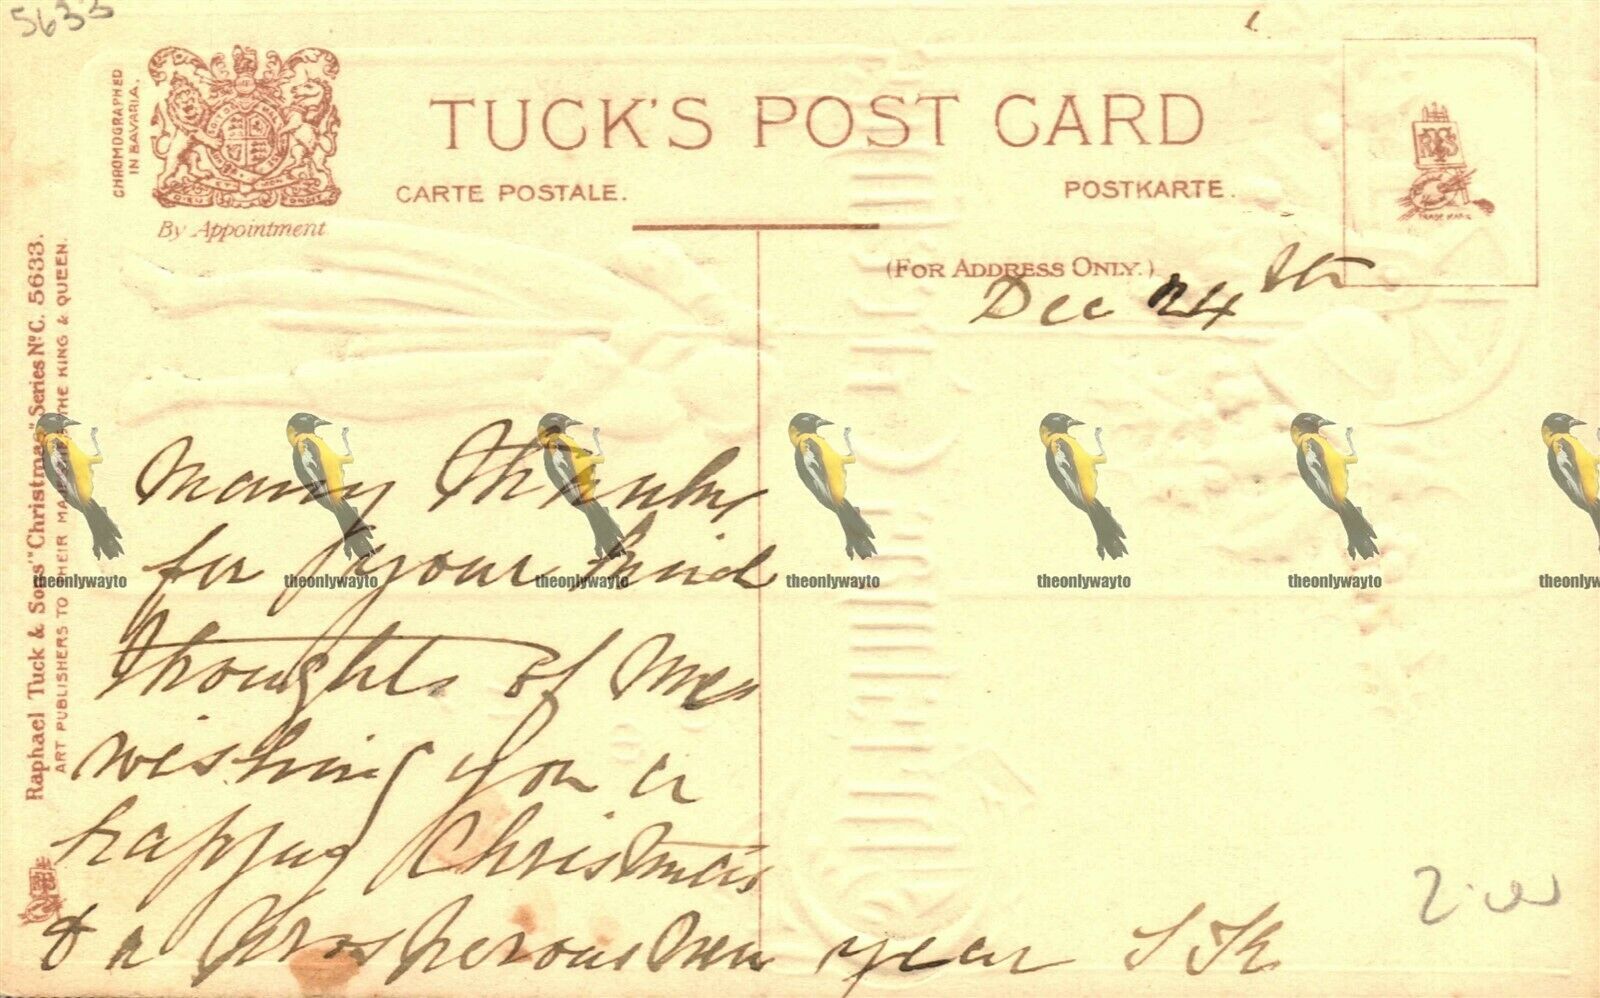 5633
CHROMOGRAPHED
IN BAVARIA.
By Appointment
TUCK'S POST CARD
CARTE POSTALE.
POSTKARTE.
(FOR ADDRESS ONLY.)
TRADE MARK
Raphael Tuck & Sons' "Christmas" Series No. C. 5633.
ART PUBLISHERS TO THEIR MAJESTIES THE KING & QUEEN.
Dec 24th
Many thanks
for your kind
thoughts of me
wishing you a
happy Christmas
& a prosperous New year
theonlywayto theonlywayto theonlywayto theonlywayto theonlywayto theonlywayto theonlyw